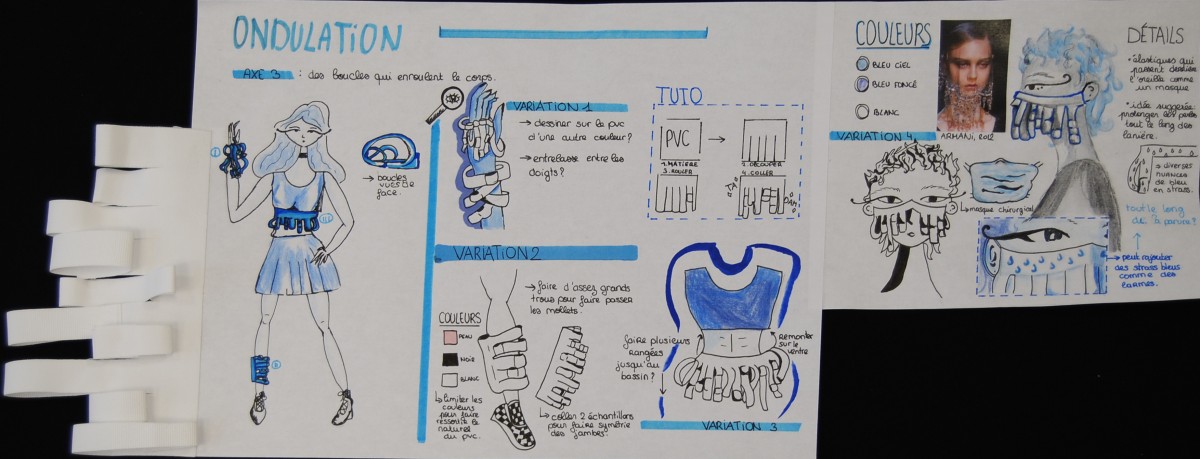 ONDULATION
AXE 3 : des boucles qui enroulent le corps.
→ boucles
vues de
face.
VARIATION 1
→ dessiner sur le pvc
d'une autre couleur?
→ entrelacer entre les
doigts?
TUTO
PVC
1. MATIÈRE
2. DÉCOUPER
3. ROULER
4. COLLER
VARIATION 2
→ faire d'assez grands
trous pour faire passer
les mollets.
COULEURS
PEAU
NOIR
BLANC
↳ limiter les
couleurs
pour faire
ressortir le
naturel
du pvc.
↳ coller 2 échantillons
pour faire symétrie
des jambes.
faire plusieurs
rangées
jusqu'au
bassin?
remonter
sur le
ventre
VARIATION 3
COULEURS
BLEU CIEL
BLEU FONCÉ
BLANC
VARIATION 4
ARMANI, 2012
↳ masque chirurgical
DÉTAILS
• élastiques qui
passent derrière
l'oreille comme
un masque
• idée suggérée:
prolonger les perles
tout le long des
lanière.
→ diverses
nuances
de bleu
en strass.
tout le long
de la parure?
→ peut rajouter
des strass bleus
comme des
larmes.